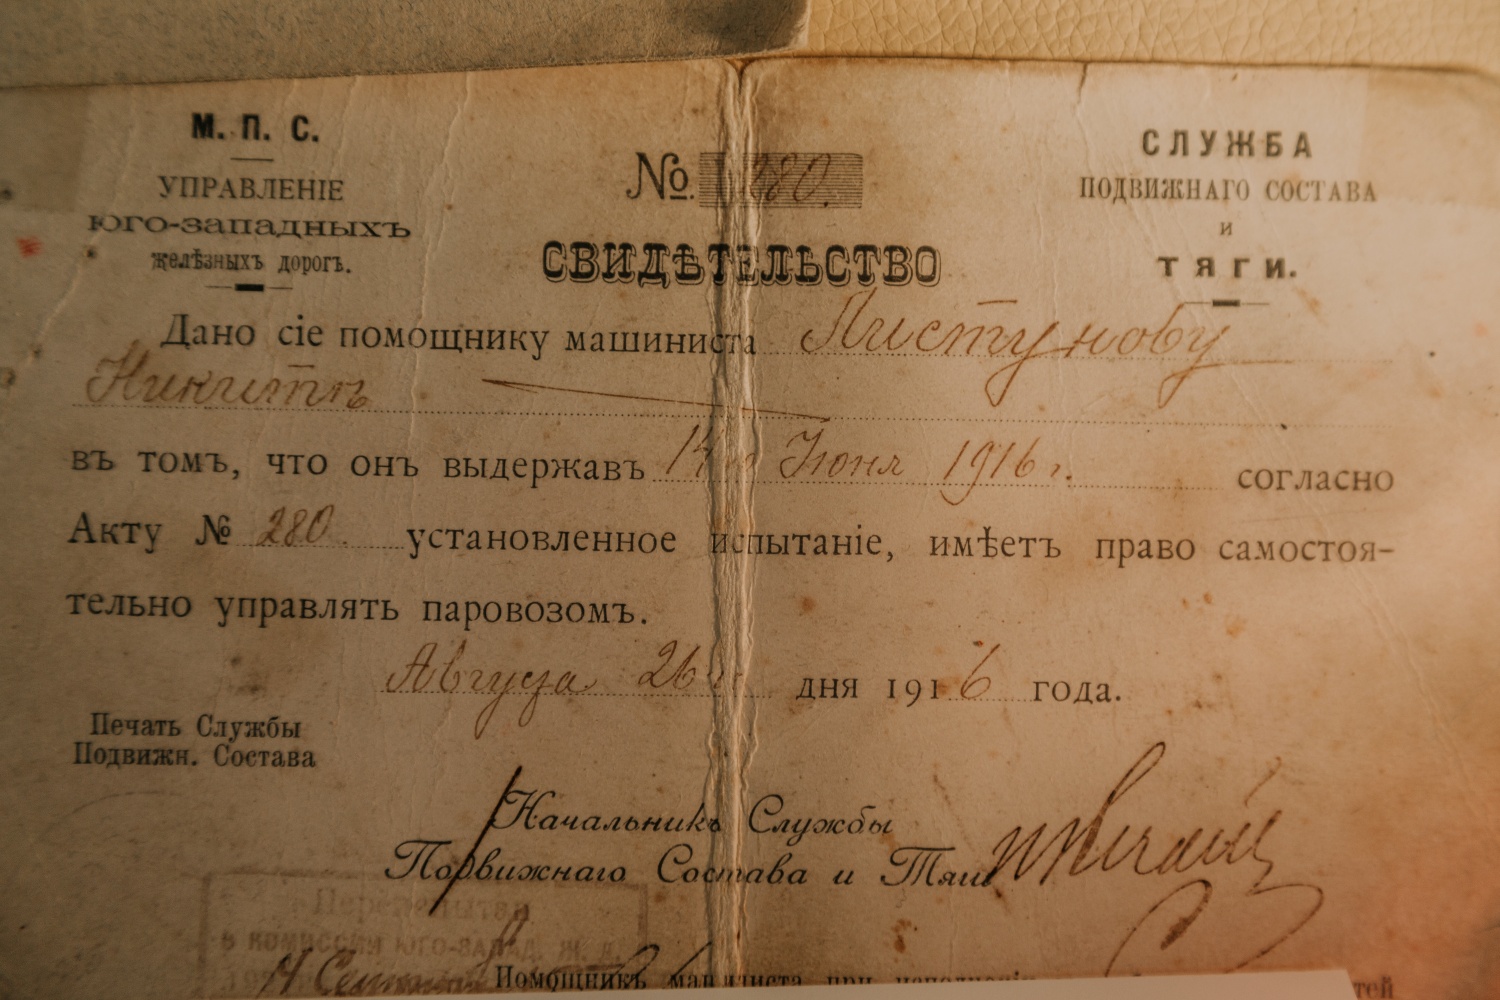 М. П. С.
УПРАВЛЕНІЕ
ЮГО-ЗАПАДНЫХЪ
желѣзныхъ дорогъ.
№ 280.
СВИДѢТЕЛЬСТВО
СЛУЖБА
ПОДВИЖНАГО СОСТАВА
И
ТЯГИ.
Дано сіе помощнику машиниста Пистунову
Никитѣ
въ томъ, что онъ выдержавъ 14го Іюня 1916 г. согласно
Акту № 280. установленное испытаніе, имѣетъ право самостоя-
тельно управлять паровозомъ.
Августа 26 дня 1916 года.
Печать Службы
Подвижн. Состава
Начальникъ Службы
Подвижнаго Состава и Тяги
в комиссии Юго-Запад. Ж. Д.
14 Помощникъ машиниста при исполненіи